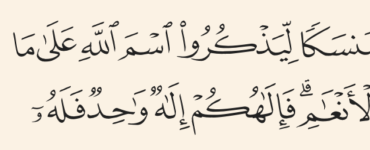 مَنسَكًا لِّيَذْكُرُوا۟ ٱسْمَ ٱللَّهِ عَلَىٰ مَا
ٱلْأَنْعَٰمِ ۗ فَإِلَٰهُكُمْ إِلَٰهٌ وَٰحِدٌ فَلَهُۥٓ